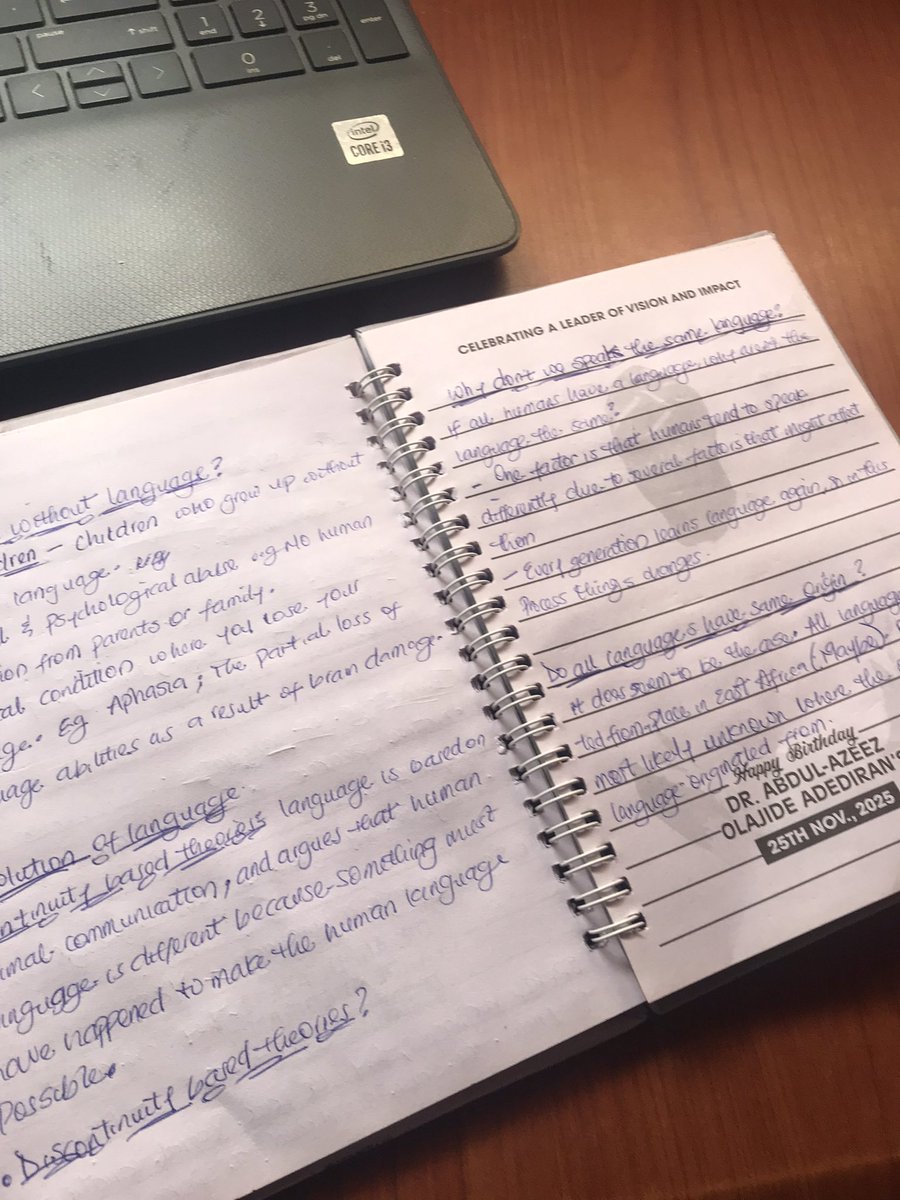 pause
↑ shift
1
end
2
↓
3
pg dn
enter
0
ins
.
del
intel
CORE i3
without language?
dren - children who grow up without
language.
l & psychological abuse e.g No human
ion from parents or family.
al condition where you lose your
ge. Eg Aphasia; The partial loss of
uage abilities as a result of brain damage.
olution of language
ntinuity based theories language is based on
imal communication, and argues that human
anguagge is different because something must
have happened to make the human language
Possible.
• Discontinuity based theories?
CELEBRATING A LEADER OF VISION AND IMPACT
Why don't we speak the same language?
If all humans have a language, why aren't the
language the same?
- One factor is that humans tend to speak
differently due to several factors that might affect
them
- Every generation learns language again, so in this
Process things changes.
Do all languages have same origin?
It does seem to be the case. All languag
ted from place in East Africa (Maybe).
most likely unknown where the
language originated from.
Happy Birthday
DR. ABDUL-AZEEZ
OLAJIDE ADEDIRAN'S
25TH NOV., 2025